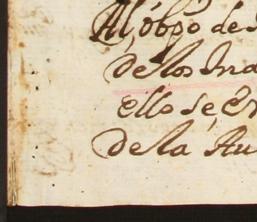 Al, obpo de
de los Ina
ello se, en
de la Au